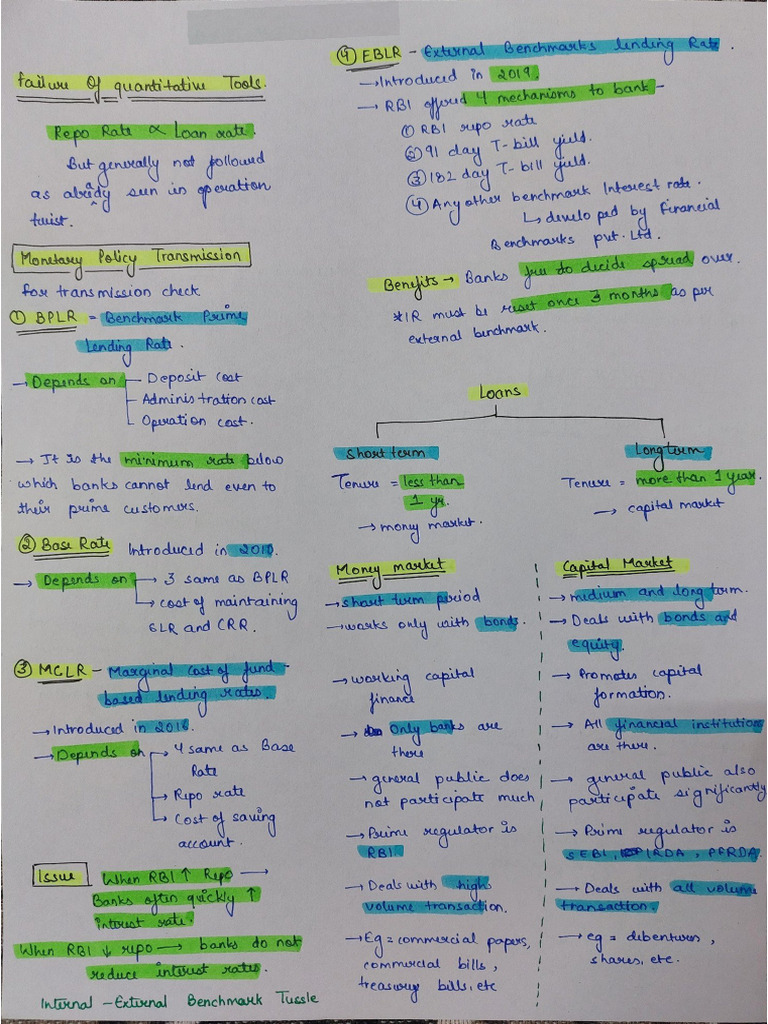 Failure Of quantitative Tools.
Repo Rate ∝ Loan rate.
But generally not followed
as already seen in operation
twist.
Monetary Policy Transmission
for transmission check
① BPLR = Benchmark Prime
Lending Rate.
→ Depends on – Deposit cost
– Administration cost
– Operation cost.
→ It is the minimum rate below
which banks cannot lend even to
their prime customers.
② Base Rate Introduced in 2010.
→ Depends on → 3 same as BPLR
→ cost of maintaining
SLR and CRR.
③ MCLR – Marginal cost of fund-
based lending rates.
→ Introduced in 2016.
→ Depends on → 4 same as Base
Rate
→ Repo rate
→ Cost of saving
account.
Issue When RBI ↑ Repo →
Banks often quickly ↑
interest rate.
When RBI ↓ repo → banks do not
reduce interest rates.
Internal – External Benchmark Tussle
④ EBLR – External Benchmarks lending Rate.
→ Introduced in 2019.
→ RBI offered 4 mechanisms to bank –
① RBI repo rate
② 91 day T-bill yield.
③ 182 day T-bill yield.
④ Any other benchmark Interest rate.
↳ developed by Financial
Benchmarks pvt. Ltd.
Benefits → Banks free to decide spread over.
*IR must be reset once 3 months as per
external benchmark.
Loans
Short term
Tenure = less than
1 yr.
→ money market.
Long term
Tenure = more than 1 year.
→ capital market
Money market
→ short term period
→ works only with bonds.
→ working capital
finance
→ Only banks are
there
→ general public does
not participate much
→ Prime regulator is
RBI
→ Deals with high
volume transaction.
→ Eg = commercial papers,
commercial bills,
treasury bills, etc
Capital Market
→ medium and long term.
→ Deals with bonds and
equity.
→ Promotes capital
formation.
→ All financial institution
are there.
→ general public also
participate significantly
→ Prime regulator is
SEBI, IRDA, PFRDA.
→ Deals with all volume
transaction.
→ eg = debentures,
shares, etc.